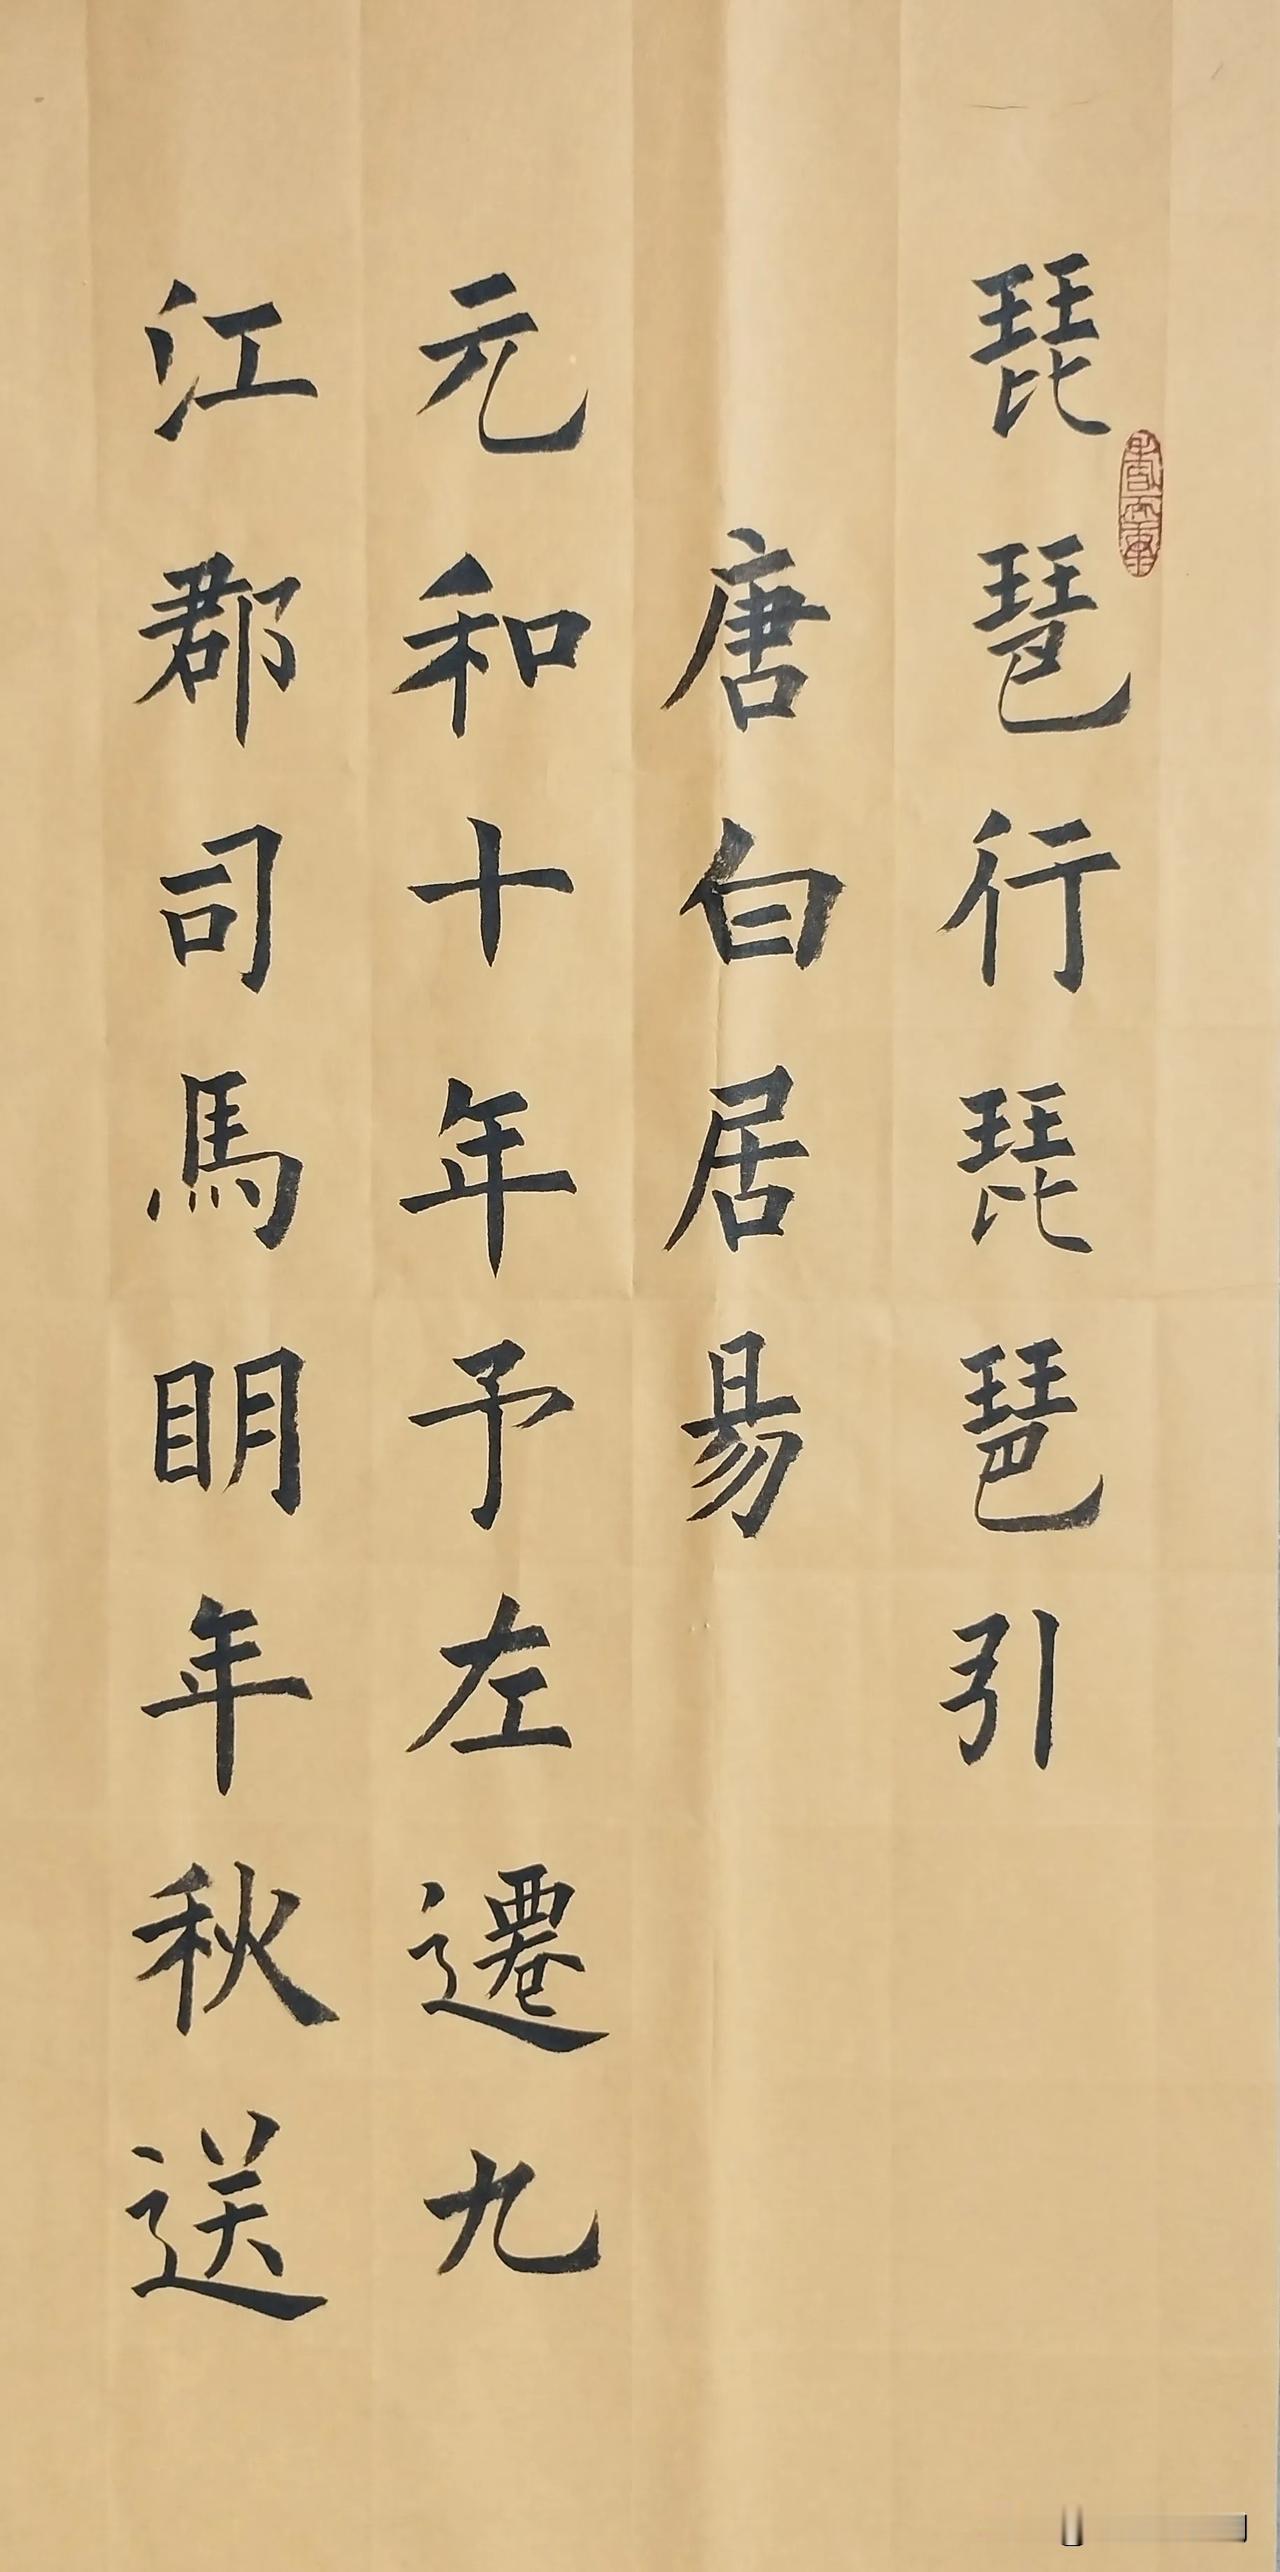 琵琶行琵琶引
唐白居易
元和十年予左遷九
江郡司馬明年秋送